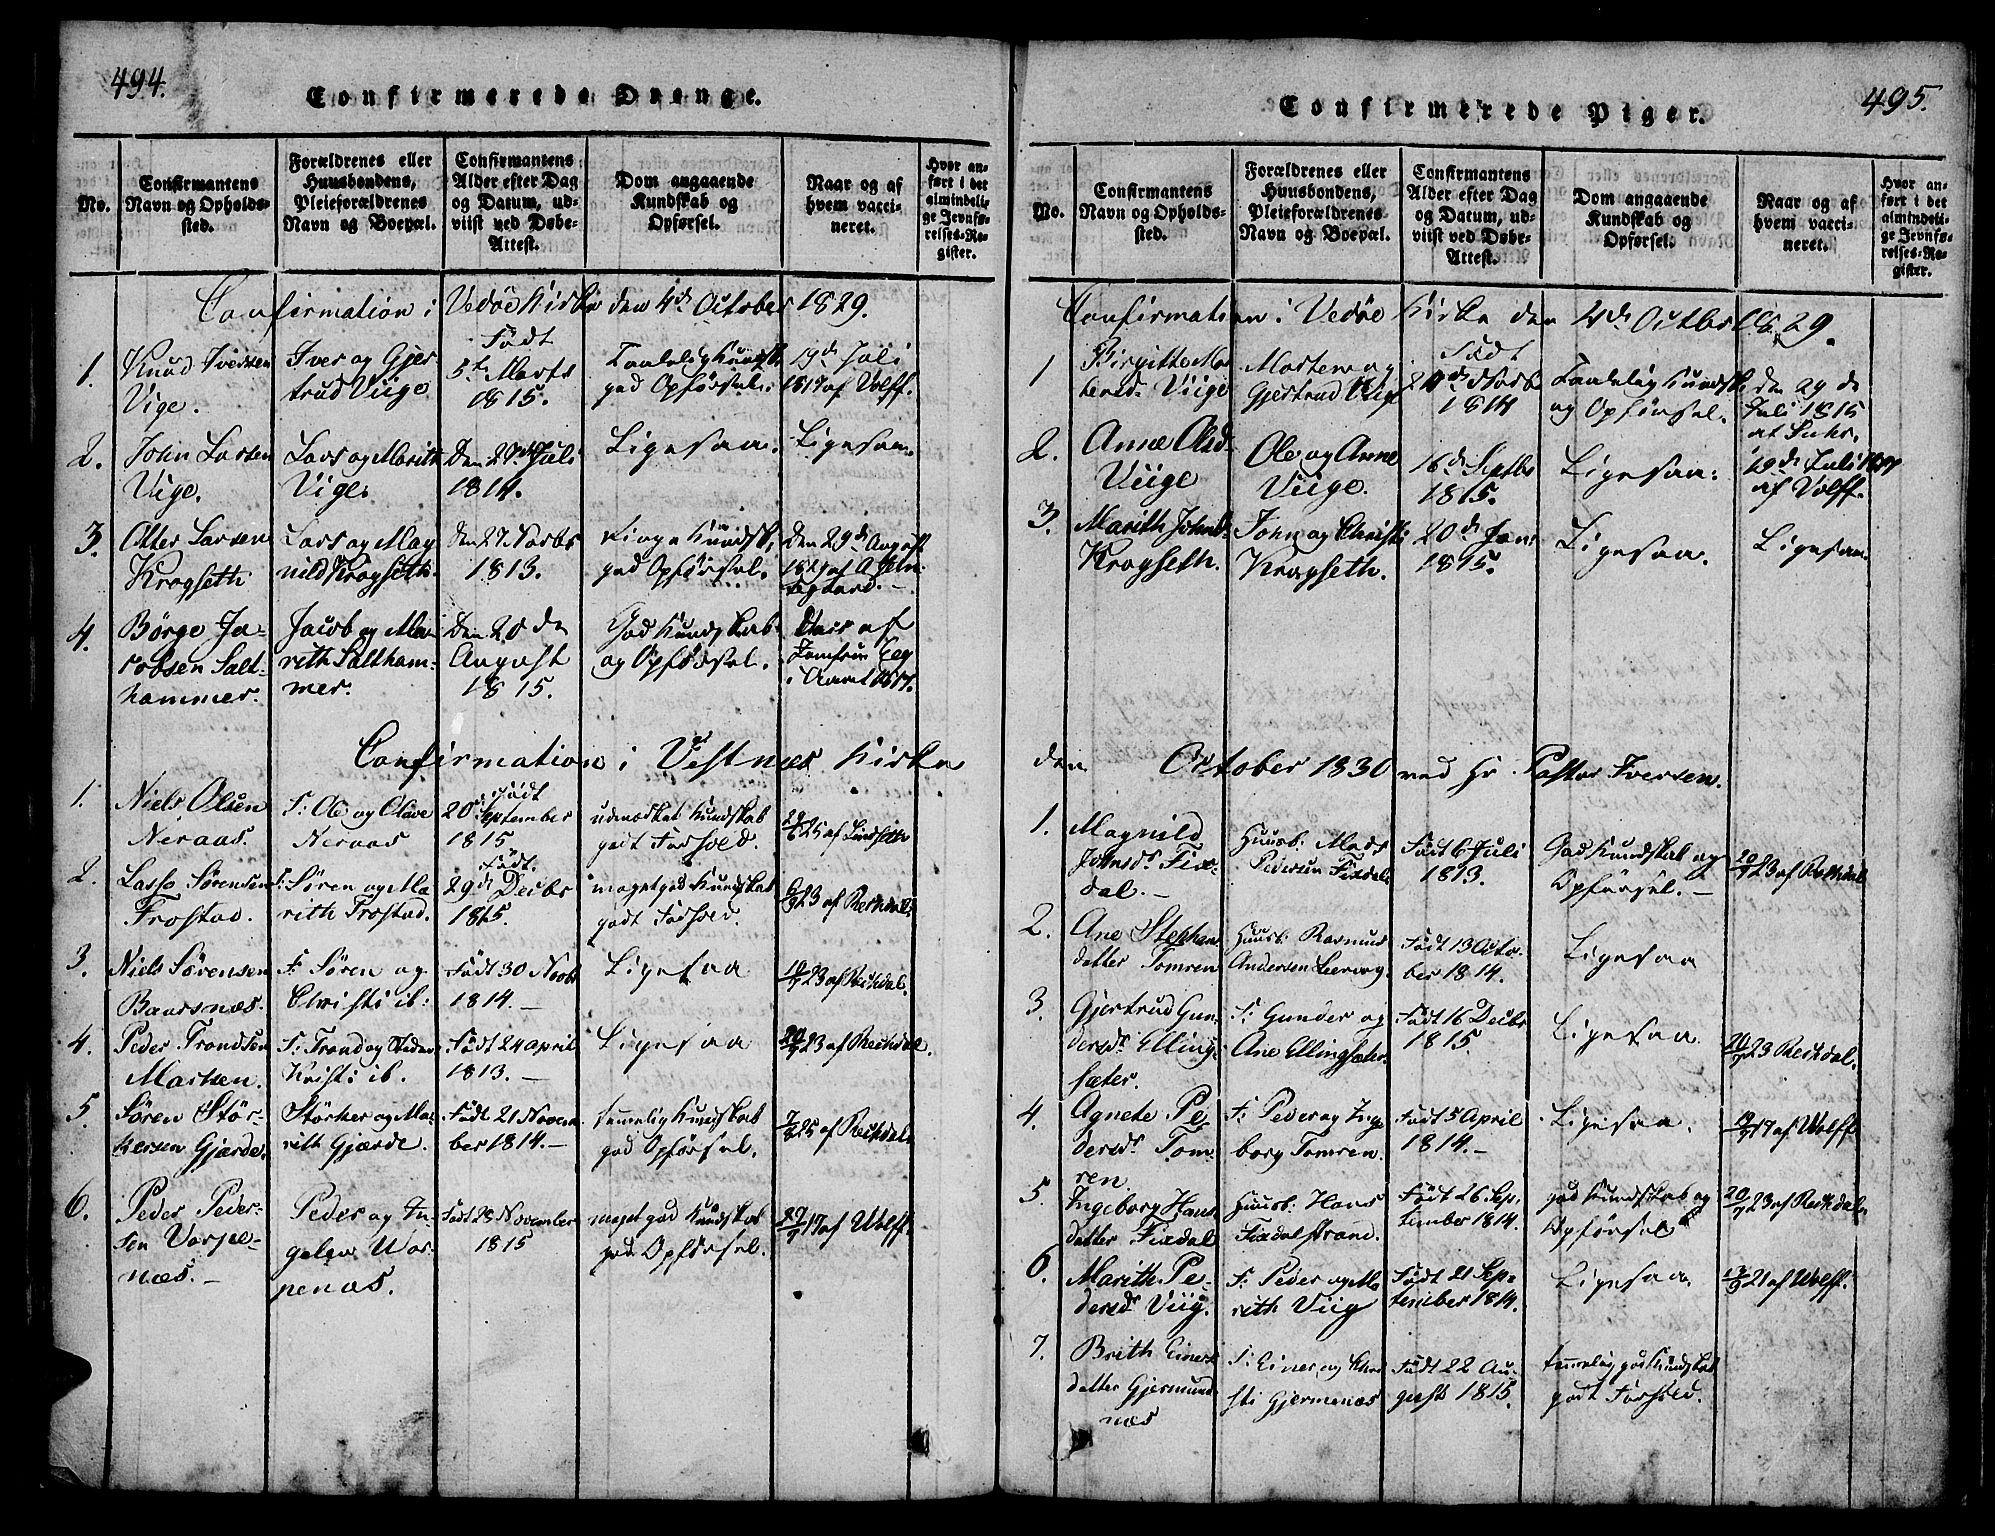 494.
Confirmerede Drenge.
No.
Confirmantens
Navn og Opholds-
sted.
Forældrenes eller
Huusbondens,
Pleieforældrenes
Navn og Boepæl.
Confirmantens
Alder efter Dag
og Datum, ud-
viist ved Døbe-
Attest.
Dom angaaende
Kundskab og
Opførsel.
Naar og af
hvem vacci-
neret.
Hvor an-
ført i det
almindeli-
ge Jevnfø-
relses-Re-
gister.
Confirmation i Vedöe Kirke den 4de October 1829.
1.
Knud Iversen
Vige.
Iver og Gjer
trud Viige
Födt
5te Marts
1815.
Taalelig Kundsk.
god Opförsel.
19de Juli
1817 af Wolff.
2.
John Larsen
Vige.
Lars og Marith
Vige.
Den 27de Juli
1814.
Ligesaa.
Ligesaa.
3.
Otter Larsen
Kragseth
Lars og Mag
nild Kragseth.
Den 27 Novbr
1813.
Ringe Kundsk.
god Opförsel.
Den 29de August
4.
Börge Ja-
cobsen Salt-
hammer.
Jacob og Ma-
rith Saltham-
mer.
Den 20de
August
1815.
God Kundskab
og Opförsel.
Vacc af
Jomfru
i Aaret 1817.
Confirmation i Vestnæs Kirke
1.
Niels Olsen
Neraas.
F: Ole og Olave
Neraas
Födt
20de September
1815
udmærket Kundskab
godt Forhold.
25 af Lindsetter
2.
Lasse Sörensen
Frostad.
F: Sören og Ma
rith Frostad.
Födt.
29de Decbr
1815.
meget god Kundskab
godt Forhold.
6/9 23 af Rechdal.
3.
Niels Sörensen
Baarsnæs.
F: Sören og
Christi ib:
Födt 30 Novbr
1814.—
Ligesaa
19/7 23 af Rechdal.
4.
Peder Trondsen
Marken.
F: Trond og
Kristi ib.
Födt 24 April
1813.—
Ligesaa
20/7 23 af Rechdal.
5.
Sören Stör-
kersen Gjærde.
Störker og Ma-
rith Gjærde.
Födt 21 Novem
ber 1814.—
temmelig Kundskab
god Opförsel.
25 af Rechdal
6.
Peder Peder-
sen Vorpe-
næs.—
Peder og In-
geleu Wor-
penæs.
Födt 28 November
1815
meget god Kundskab
god Opförsel.
17 af Wolff.
495.
Confirmerede Piger.
No.
Confirmantens
Navn og Opholds-
sted.
Forældrenes eller
Huusbondens,
Pleieforældrenes
Navn og Boepæl.
Confirmantens
Alder efter Dag
og Datum, ud-
viist ved Døbe-
Attest.
Dom angaaende
Kundskab og
Opførsel.
Naar og af
hvem vacci-
neret.
Hvor an-
ført i det
almindeli-
ge Jevnfø-
relses-Re-
gister.
Confirmation i Vedöe Kirke den 4de Octbr 1829.
1
Birgitte Mor
Viige
Morten og
Gjertrud Viige
Födt
Novb
1814
Taalelig Kundsk.
og Opförsel.
Juli 1815
2.
Anne Olsd.
Viige
Ole og Anne
Viige.
16de Septbr
1815.
Ligesaa.
19de Juli 1817
af Wolff.
3.
Marith Johnsd
Kragseth.
John og Christi
Kragseth.
20de Jan:
1815.
Ligesaa.
Ligesaa.
den October 1830 ved Hr Pastor Iversen.
1.
Magnild
Johnsdr Fix-
dal.—
Huusb. Mads
Pedersen Fixdal
Födt 6 Juli
1813.
God Kundskab og
Opförsel.—
20/7 23 af Rechdal
2.
Ane Stephans
datter Tomren
Huusb: Rasmus
Andersen Leervog.
Födt 13 Octo-
ber 1814.
Ligesaa
3.
Gjertrud Gun-
dersdr Elling-
sæter.
F: Gunder og
Ane Ellingsæter.
Födt 16 Decbr
1815.
Ligesaa
20/7 23 Rechdal.
4.
Agnete Pe-
dersdr Tom-
ren.
F: Peder og Inge
borg Tomren.
Födt 5 April
1814.—
Ligesaa.
19/7 17 af Wolff
5
Ingeborg Hans
datter Fixdal
Huusb: Hans
Fixdalstrand.
Födt 26 Sep-
tember 1814.
god Kundskab og
Opförsel
20/7 23 af Rechdal
6.
Marith Pe-
dersdr Viig.
F: Peder og Ma
rith Viig
Födt 21 Sep-
tember 1814.
Ligesaa.
21 af Wolff.
7.
Brith Einers
datter Gjermund
næs
F: Einer og Chri
sti Gjermenæs
Födt 22 Au-
gust 1815.
temmelig god Kundskab
godt Forhold.